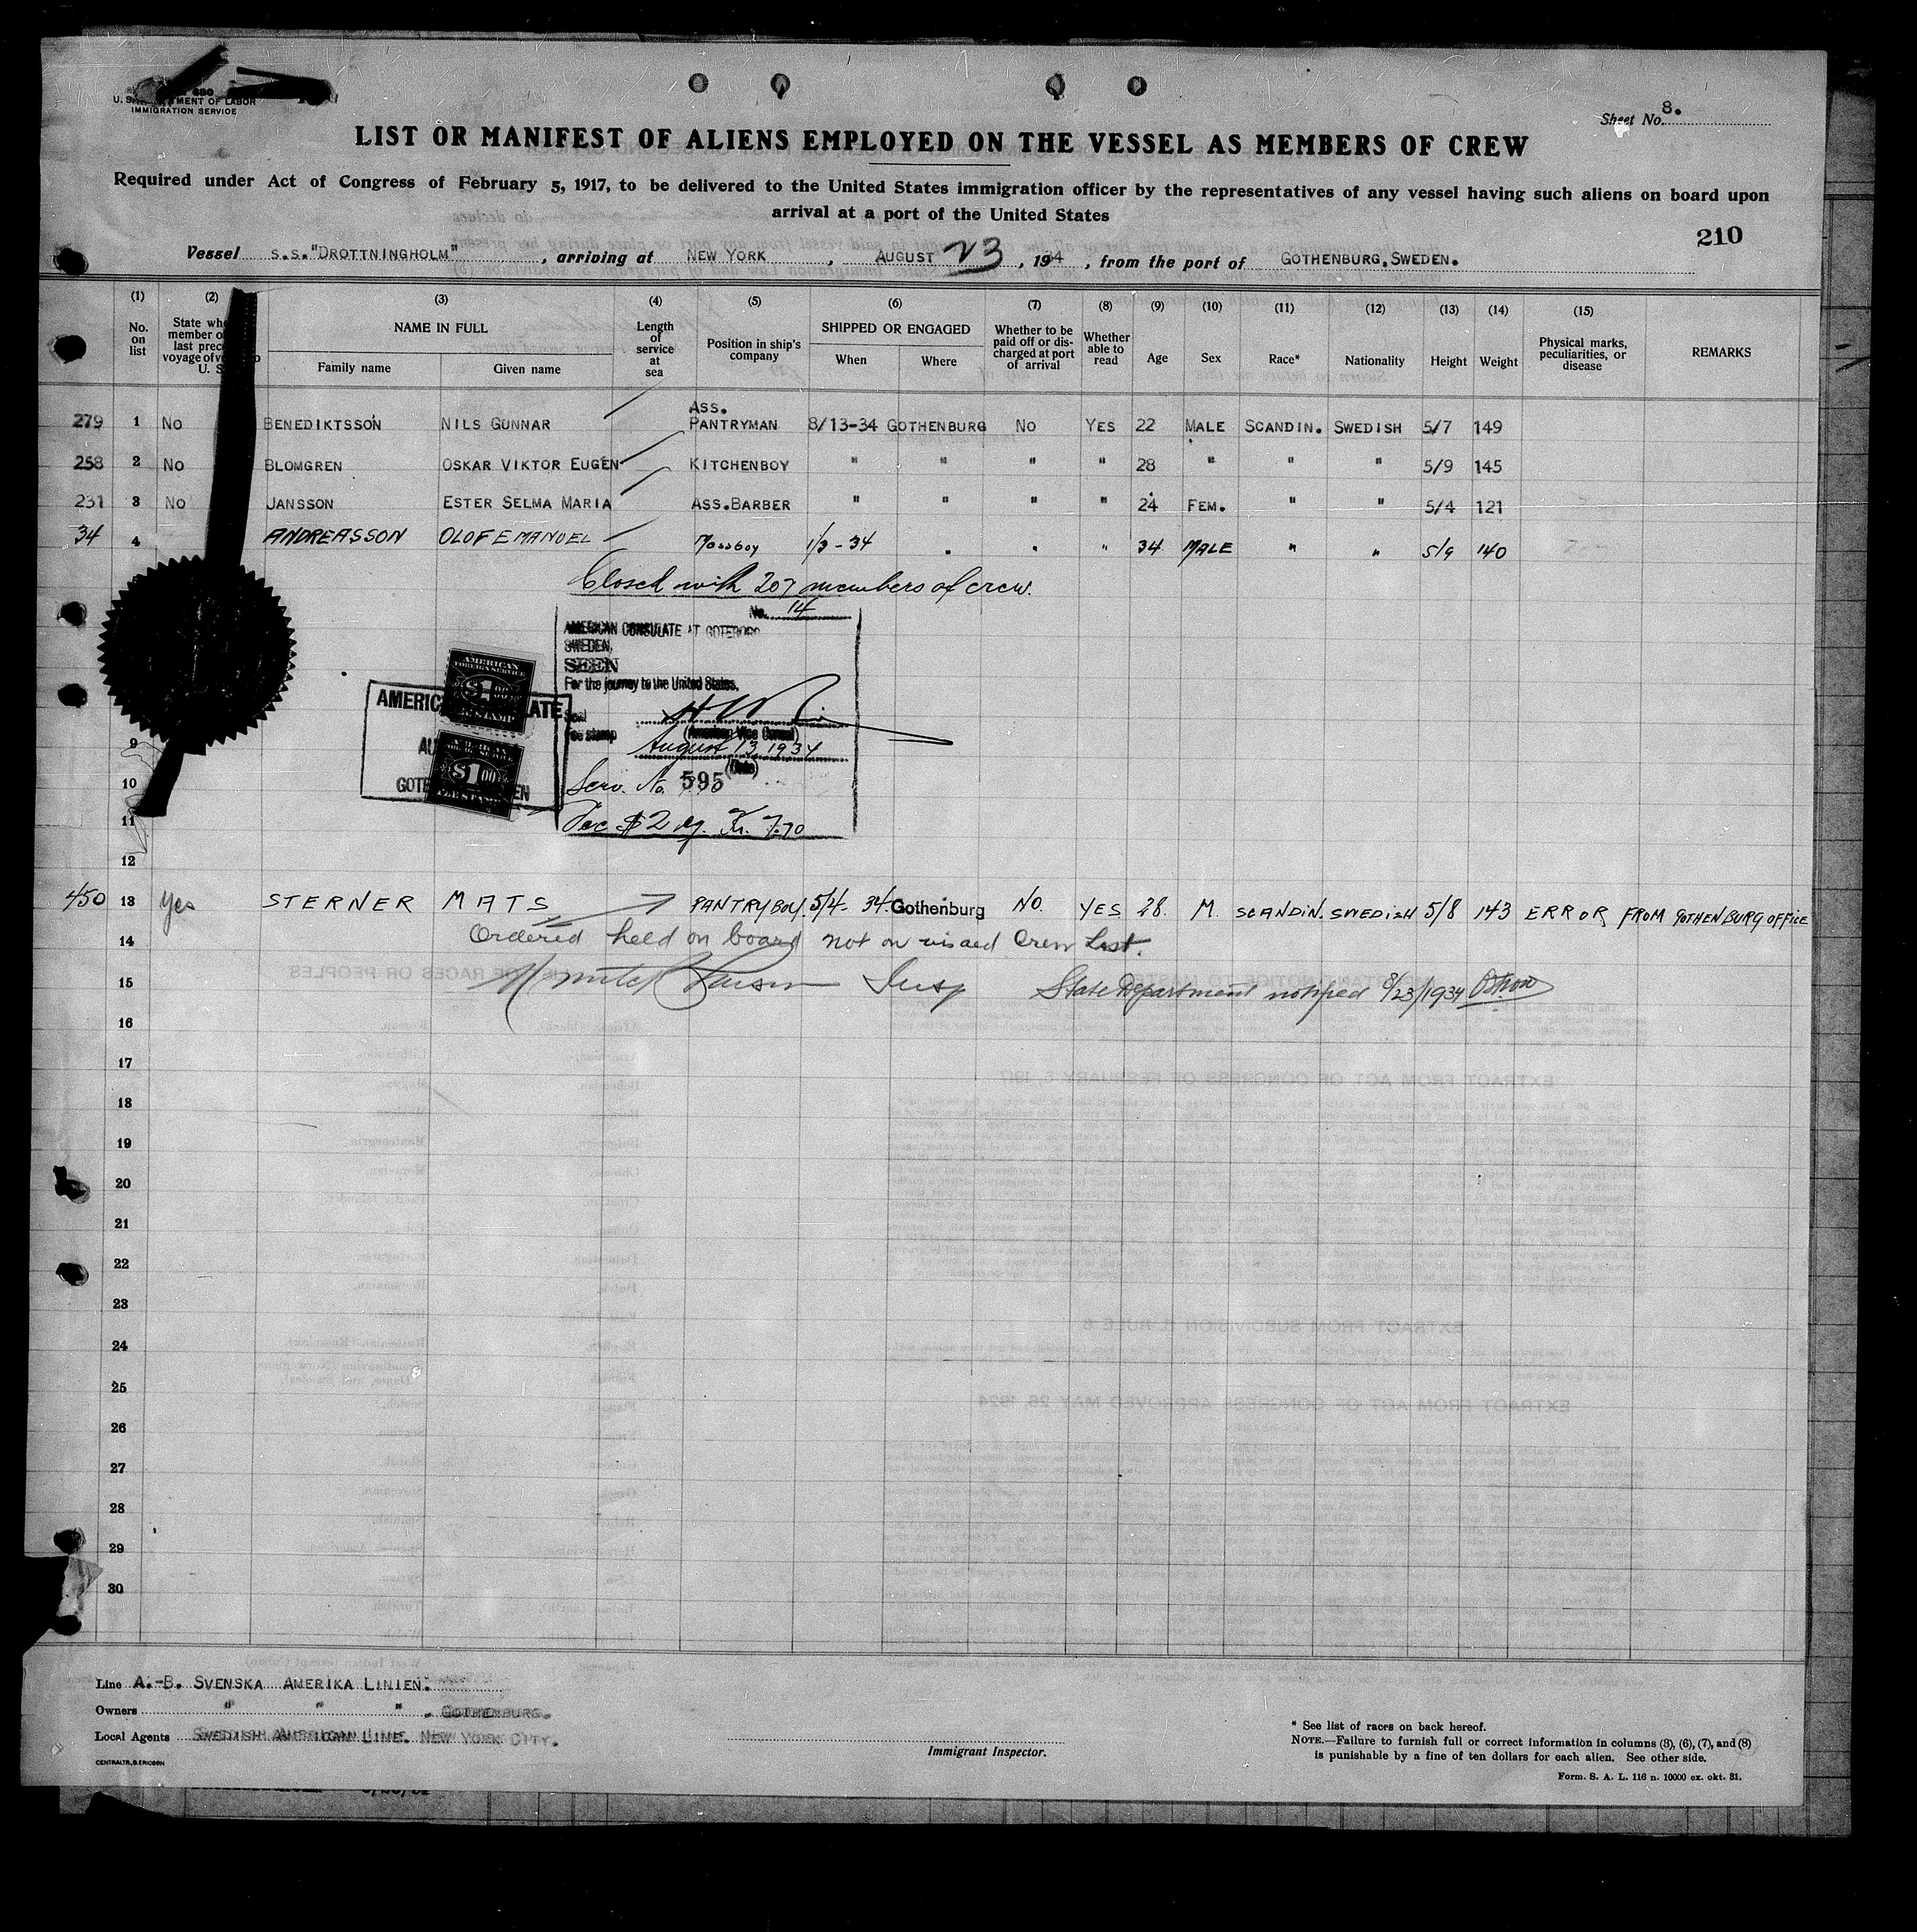 U. S. DEPARTMENT OF LABOR
IMMIGRATION SERVICE
Sheet No. 8.
LIST OR MANIFEST OF ALIENS EMPLOYED ON THE VESSEL AS MEMBERS OF CREW
Required under Act of Congress of February 5, 1917, to be delivered to the United States immigration officer by the representatives of any vessel having such aliens on board upon
arrival at a port of the United States
210
Vessel S.S."DROTTNINGHOLM", arriving at NEW YORK, AUGUST 23, 1934, from the port of GOTHENBURG, SWEDEN.
(1) (2) (3) (4) (5) (6) (7) (8) (9) (10) (11) (12) (13) (14) (15)
No. on list
NAME IN FULL
Family name
Given name
Length of service at sea
Position in ship's company
SHIPPED OR ENGAGED
When
Where
Whether to be paid off or discharged at port of arrival
Whether able to read
Age
Sex
Race*
Nationality
Height
Weight
Physical marks, peculiarities, or disease
REMARKS
279 1 No BENEDIKTSSON NILS GUNNAR ASS. PANTRYMAN 8/13-34 GOTHENBURG No YES 22 MALE SCANDIN. SWEDISH 5/7 149
258 2 No BLOMGREN OSKAR VIKTOR EUGEN KITCHENBOY " " " " 28 " " " 5/9 145
231 3 No JANSSON ESTER SELMA MARIA ASS.BARBER " " " " 24 FEM. " " 5/4 121
34 4 ANDREASSON OLOF EMANUEL Messboy 1/3-34 " " " 34 MALE " " 5/9 140
Closed with 207 members of crew.
No. 14
AMERICAN CONSULATE AT GOTEBORG
SWEDEN,
SEEN
For the journey to the United States.
Seal
Fee stamp
(American Vice Consul)
August 13, 1934
(Date)
Serv. No. 595
Fee $2 eq. Kr. 7.70
AMERICAN
FOREIGN SERVICE
$1.00
$1.00
9
10
11
12
450 13 Yes STERNER MATS PANTRYBOY. 5/4-34. Gothenburg NO. YES 28. M. SCANDIN. SWEDISH 5/8 143 ERROR FROM GOTHENBURG OFFICE
14 Ordered held on board not on visaed Crew List.
15 Insp State Department notified 8/23/1934
16
17
18
19
20
21
22
23
24
25
26
27
28
29
30
Line A.-B. SVENSKA AMERIKA LINIEN.
Owners " " " , GOTHENBURG.
Local Agents SWEDISH AMERICAN LINE. NEW YORK CITY.
CENTRALTR., B. ERICSON
Immigrant Inspector.
* See list of races on back hereof.
NOTE.—Failure to furnish full or correct information in columns (3), (6), (7), and (8)
is punishable by a fine of ten dollars for each alien. See other side.
Form. S. A. L. 116 n. 10000 ex. okt. 31.